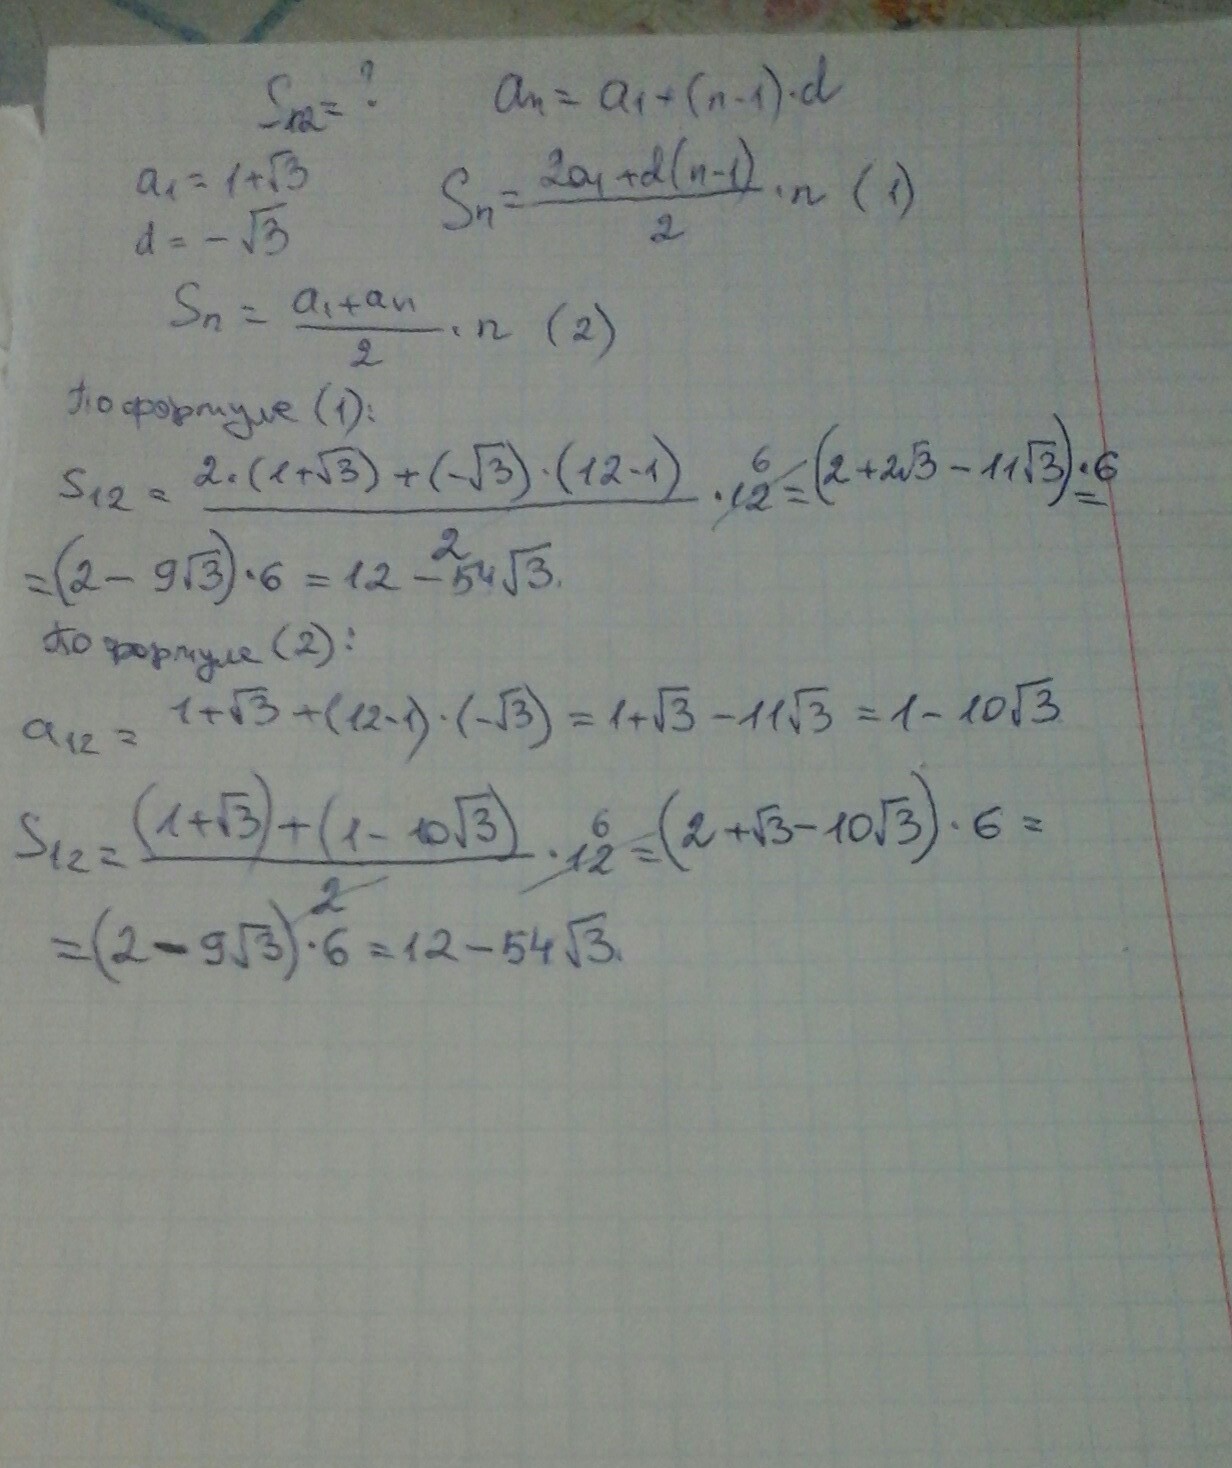 S₁₂ = ? aₙ = a₁ + (n-1)·d
a₁ = 1+√3 Sₙ = (2a₁ + d(n-1))/2 · n (1)
d = -√3
Sₙ = (a₁+aₙ)/2 · n (2)
По формуле (1):
S₁₂ = (2·(1+√3) + (-√3)·(12-1))/2 · 12 6 = (2+2√3 - 11√3)·6 =
= (2 - 9√3)·6 = 12 - 54√3.
По формуле (2):
a₁₂ = 1+√3 + (12-1)·(-√3) = 1+√3 - 11√3 = 1 - 10√3
S₁₂ = ((1+√3) + (1 - 10√3))/2 · 12 6 = (2 + √3 - 10√3)·6 =
= (2 - 9√3)·6 = 12 - 54√3.